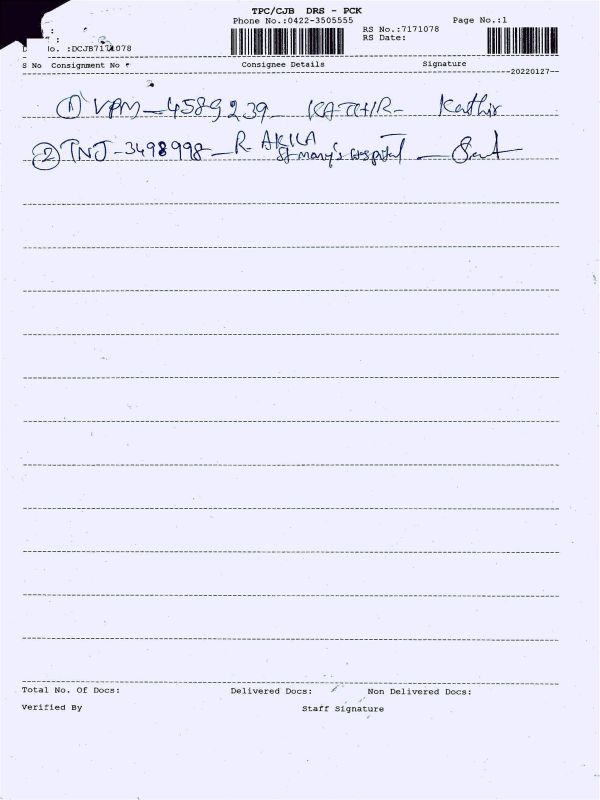 TPC/CJB DRS - PCK
Phone No.:0422-3505555
Page No.:1
RS No.:7171078
RS Date:
No. :DCJB7171078
S No Consignment No Consignee Details Signature
--20220127--
① VPM - 4589239 - KATHIR - Kathir
② TNJ - 3498998 - R. AKILA
St mary's Hospital
Total No. Of Docs: Delivered Docs: Non Delivered Docs:
Verified By Staff Signature